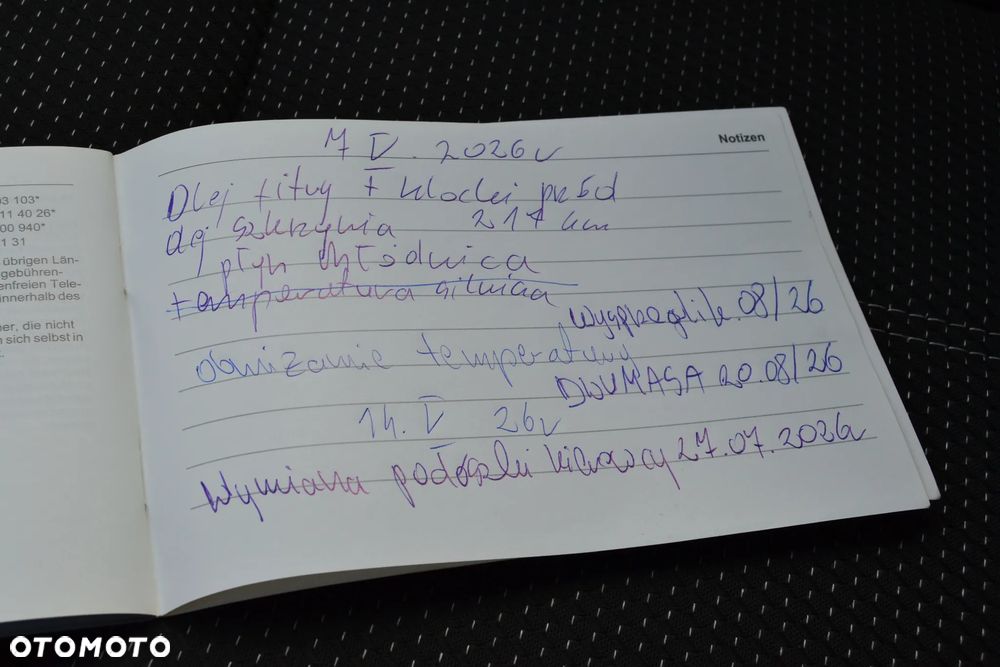 Notizen
7 V. 2026r
Olej filtry + klocki przód
olej szkrzynia 217 km
płyn chłodnica
temperatura silnika
wysprzęglik 08/26
obniżanie temperatury
DWUMASA 20.08/26
14. V 26r
Wymiana poduszki 27.07.2026r
03 103*
11 40 26*
00 940*
1 31
übrigen Län-
gebühren-
enfreien Tele-
innerhalb des
ner, die nicht
sich selbst in
OTOMOTO